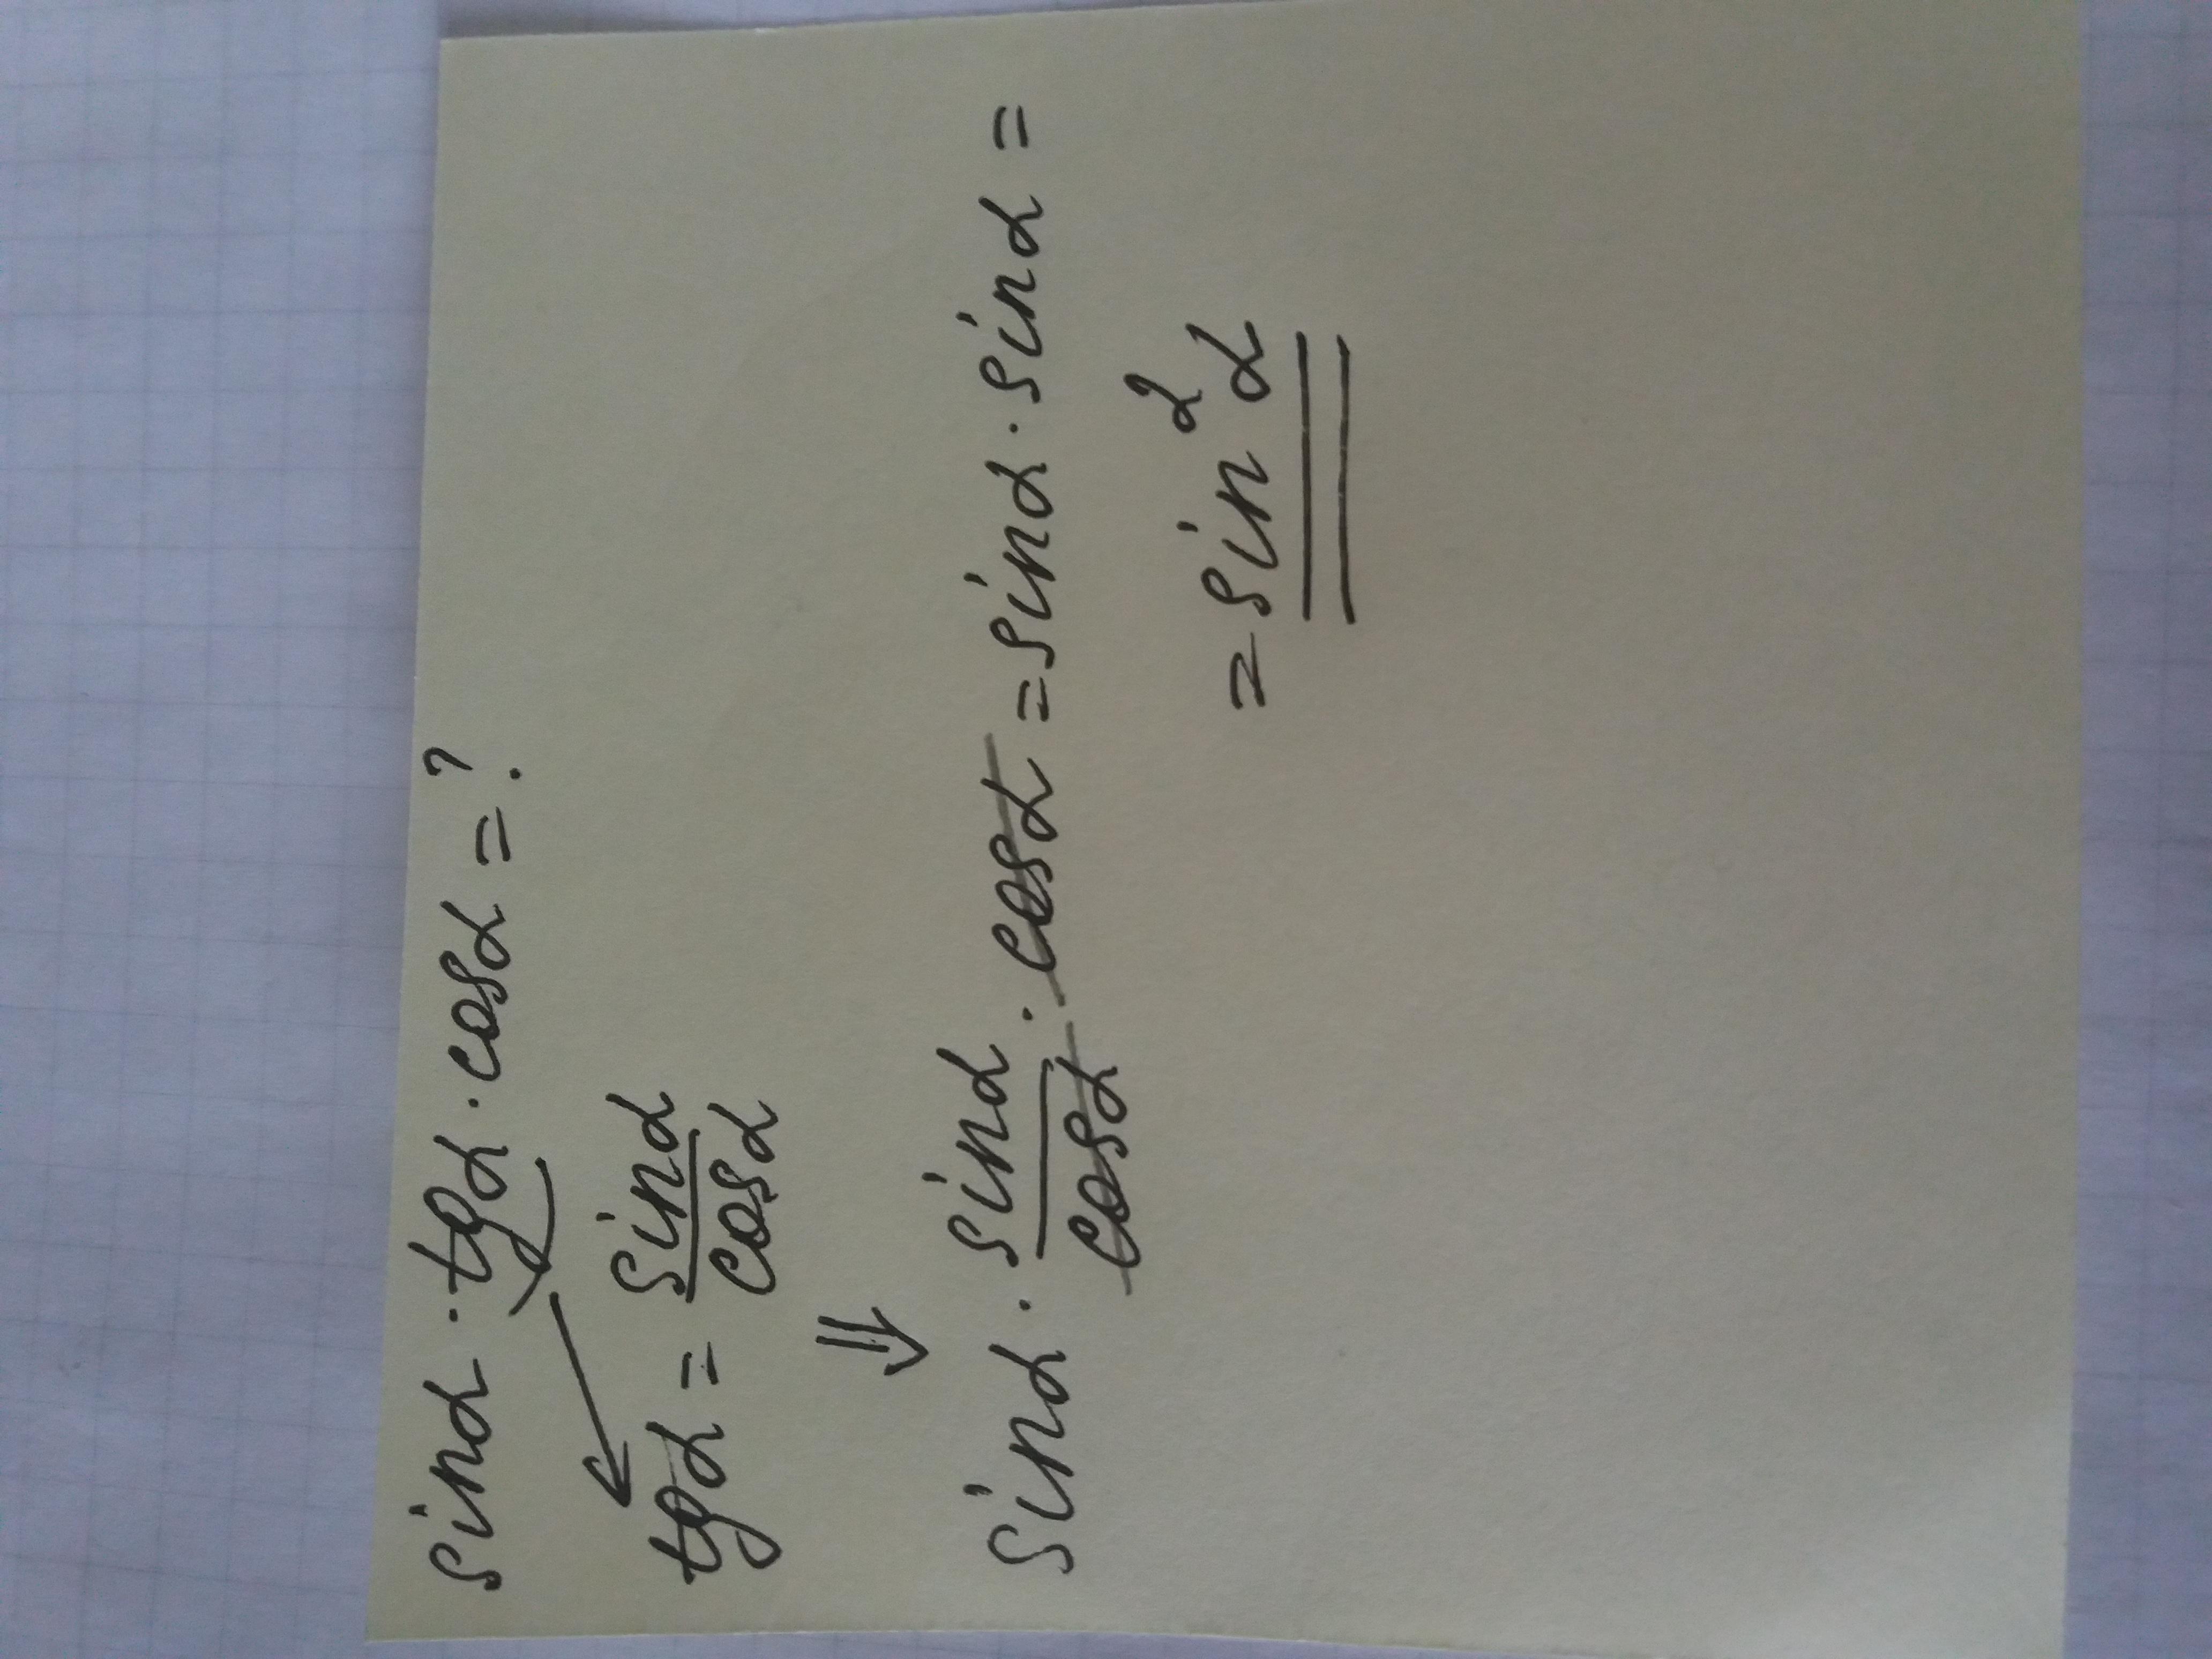 sinα · tgα · cosα = ?
tgα = sinα / cosα
⇓
sinα · sinα / cosα · cosα = sinα · sinα =
= sin²α